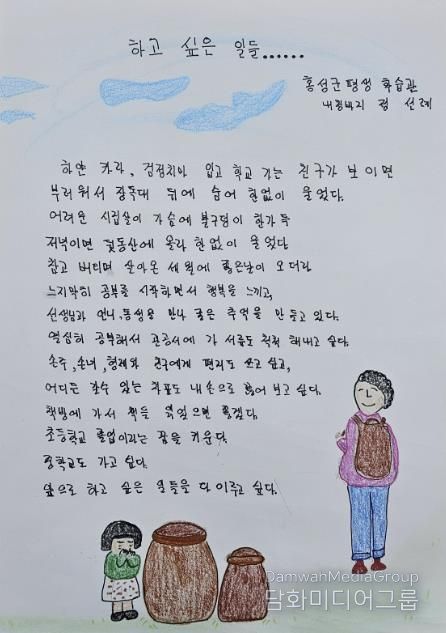 하고 싶은 일들......
홍성군 평생 학습관
내 선례
하얀 카라, 검정치마 입고 학교 가는 친구가 보이면
부러워서 장독대 뒤에 숨어 한없이 울었다.
어려운 시집살이 가슴에 불구덩이 한가득
저녁이면 뒷동산에 올라 한없이 울었다
참고 버티며 살아온 세월에 좋은날이 오더라
느지막히 공부를 시작하면서 행복을 느끼고,
선생님과 언니, 동생을 만나 좋은 추억을 만들고 있다.
열심히 공부해서 관공서에 가 서류도 척척 해내고 싶다.
손주, 손녀, 형제와 친구에게 편지도 쓰고 싶고,
어디든 갈수 있는 차표도 내손으로 끊어 보고 싶다.
책방에 가서 책을
초등학교 졸업이라는 꿈을 키운다.
중학교도 가고 싶다.
앞으로 하고 싶은 일들을 다 이루고 싶다.
DamwahMediaGroup
담화미디어그룹